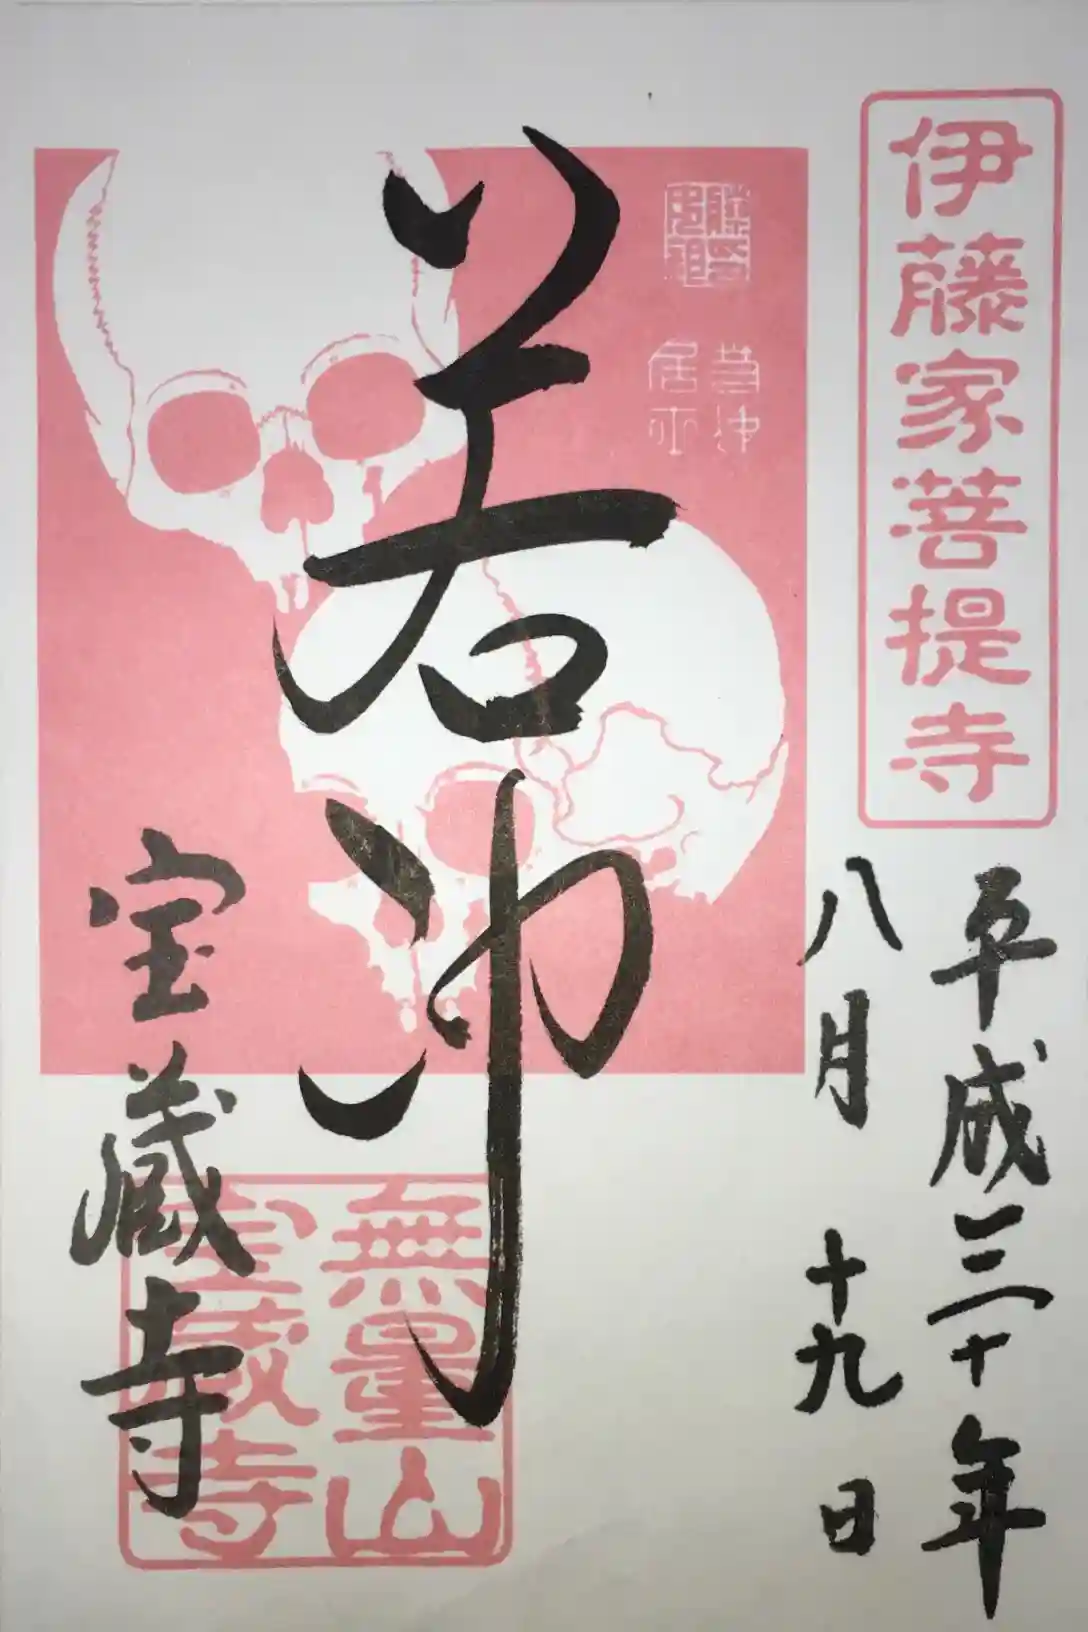 伊藤家菩提寺
平成三十年
八月十九日
若冲
若冲
居士
宝蔵寺
無量山
宝蔵寺